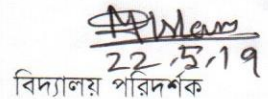 22.5.19
বিদ্যালয় পরিদর্শক